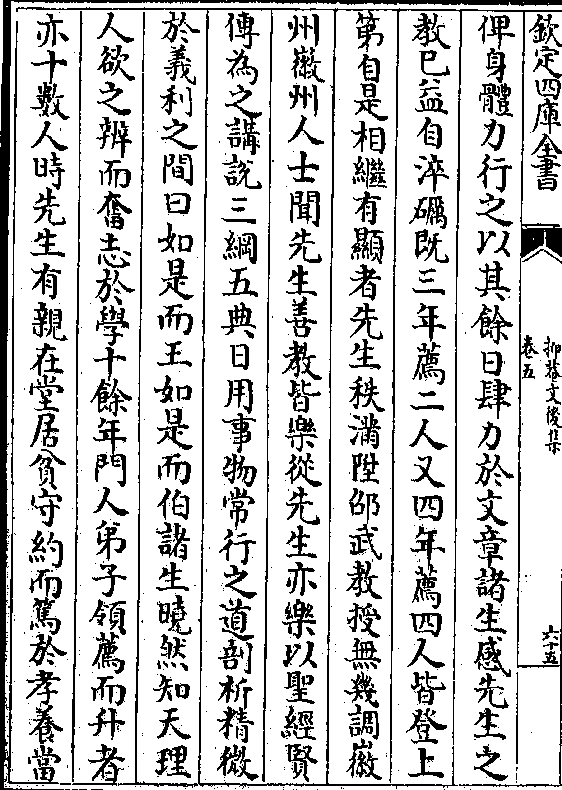 欽定四庫全書
抑菴文後集
卷五
六十五
俾身體力行之以其餘日肆力於文章諸生感先生之
教已益自淬礪既三年薦二人又四年薦四人皆登上
第自是相繼有顯者先生秩滿陞邵武教授無幾調徽
州徽州人士聞先生善教皆樂從先生亦樂以聖經賢
傳為之講說三綱五典日用事物常行之道剖析精微
於義利之間曰如是而王如是而伯諸生曉然知天理
人欲之辨而奮志於學十餘年門人弟子領薦而升者
亦十數人時先生有親在堂居貧守約而篤於孝養當